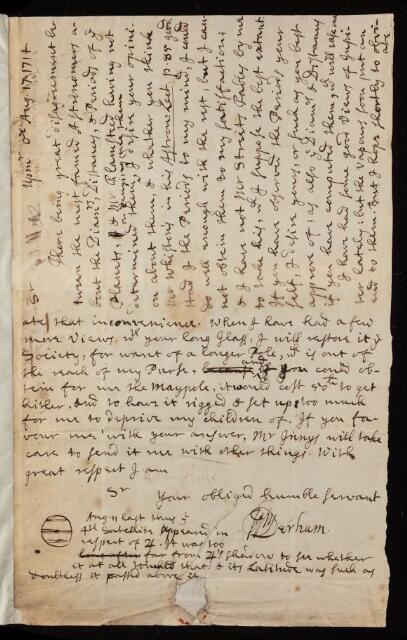 Upmr. Aug. 17. 1714
Sr
There being great disagreement be
tween the most famed Astronomers a
bout the Diamrs, Distances, & Periods of ye
Planets, & Mr Flamsteed having not
determined them, I desire your opini
on about them, & whether you think
Mr Whiston's in his Astron. Lect. p. 85 good
Had I the Periods to my mind, I could
do well enough with the rest; but I can
not obtain them to my satisfaction:
& I have not Mr Street's Tables by me
to take his, wch I suppose the best extant.
If you have observed the Periods your
self, I desire yours, or such as you best
approve of: as also ye Diamrs & Distances
if you have computed them.
I have had some good Views of
ber lately; but the Vapours soon put an
end to them. But I hope shortly to obvi
ate
ate that inconvenience. When I have had a few
more Views wth your long Glass, I will restore it ye
Society, for want of a longer Pole, wch is out of
the reach of my Purse, and if you could ob
tein for me the Maypole, it would cost 50s to get
hither, And to have it rigged & set up, too much
for me to deprive my children of. If you fa
vour me with your answer, Mr Innys will take
care to send it me with other things. With
great respect I am
Sr
Your obliged humble servant
Wm Derham.
Aug. 11 last thus ye
4th Satellite appeared in
respect of ♃. It was too
far from ♃'s shadow to see whether
it at all touched that: & its Latitude was such as
doubtless it passed above it